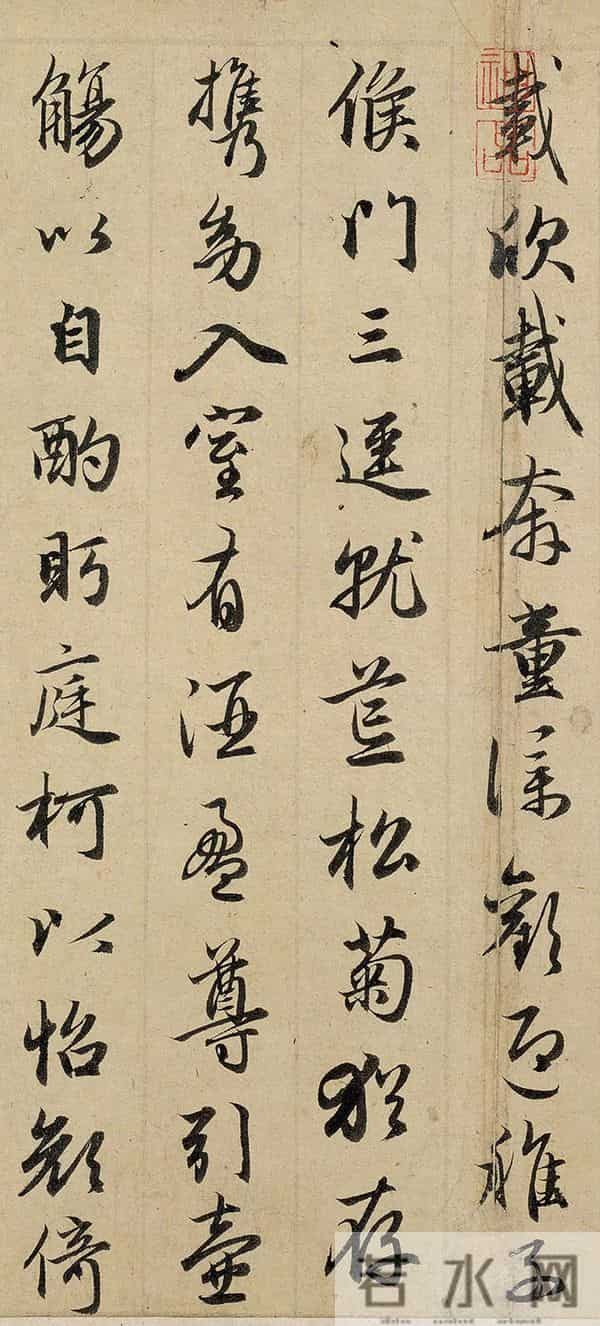 載欣載奔童僕歡迎稚子
候門三逕就荒松菊猶存
携幼入室有酒盈尊引壺
觴以自酌眄庭柯以怡顏倚
若水网